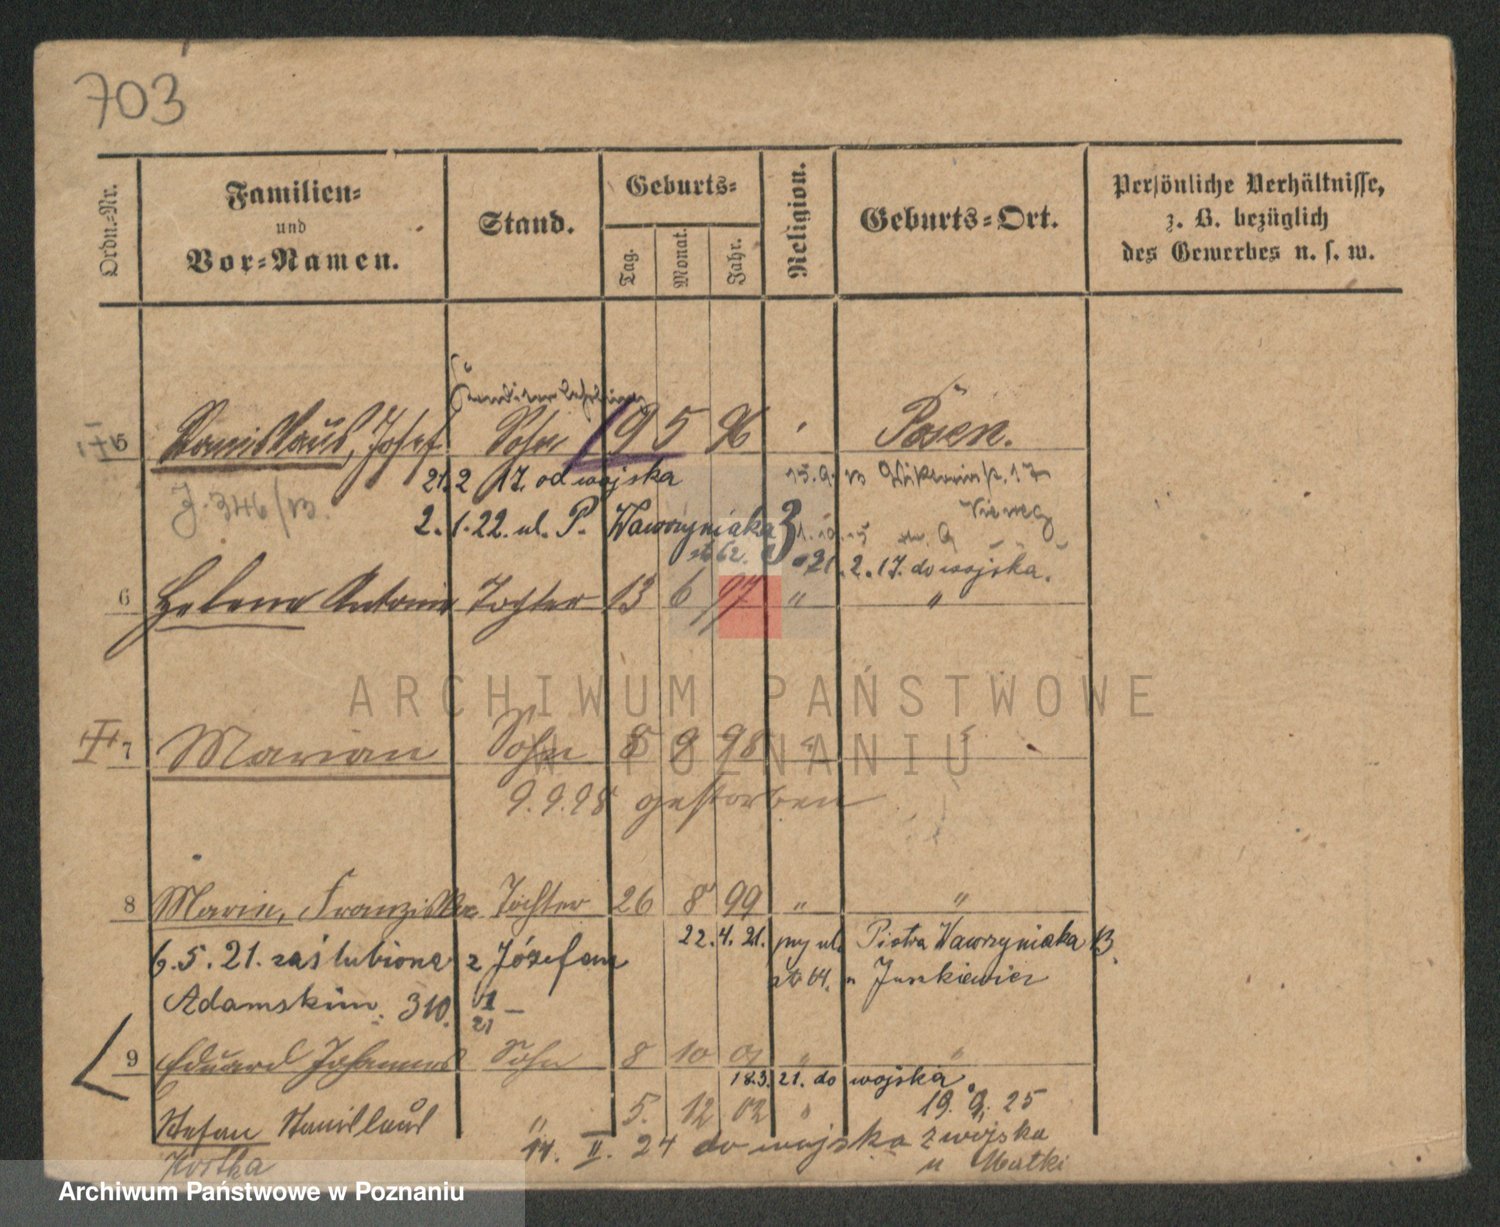 703
Ordn.-Nr.
Familien-
und
Vor-Namen.
Stand.
Geburts-
Tag.
Monat.
Jahr.
Religion.
Geburts-Ort.
Persönliche Verhältnisse,
z. B. bezüglich
des Gewerbes u. s. w.
5 Stanislaus, Josef Sohn 19 5 96 Posen.
21.2 17. od wojska
J. 346/13.
2.1.22. ul. P. Wawrzyniaka 3
21.2.17. do wojska.
6 Helene Antonie Tochter 13 6 97 " "
ARCHIWUM PAŃSTWOWE
W POZNANIU
7 Marian Sohn 8 9 98 "
9.9.98 gestorben
8 Marie, Franziska Tochter 26 8 99 " "
22.4.21. przy ul. Piotra Wawrzyniaka 13.
6.5.21. zaślubiona z Józefem
64. u Juszkiewicz
Adamskim. 310. 1/21 –
9 Eduard Johannes Sohn 8 10 01 " "
18.3.21. do wojska
Stefan Stanislaus " 5. 12 02 "
19. 9. 25
Kostka
14. II. 24 do wojska z wojska
u Matki
Archiwum Państwowe w Poznaniu